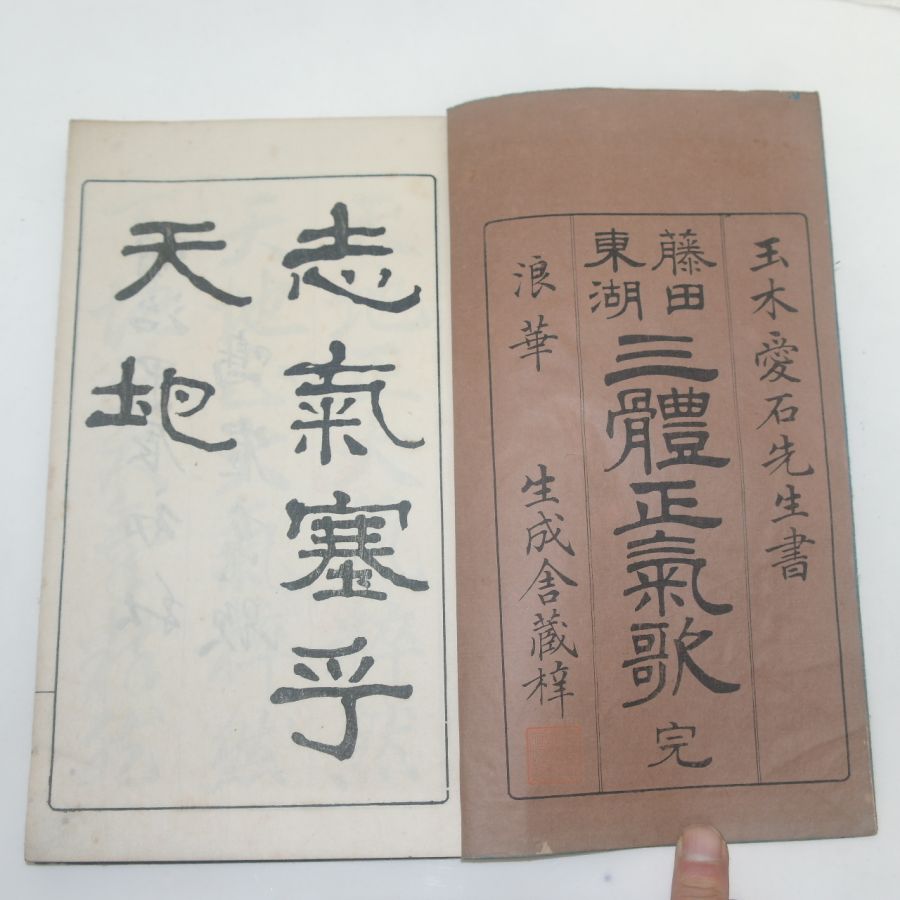 玉木愛石先生書
藤田
東湖
三體正氣歌 完
浪華 生成舎藏梓
志氣塞乎
天地